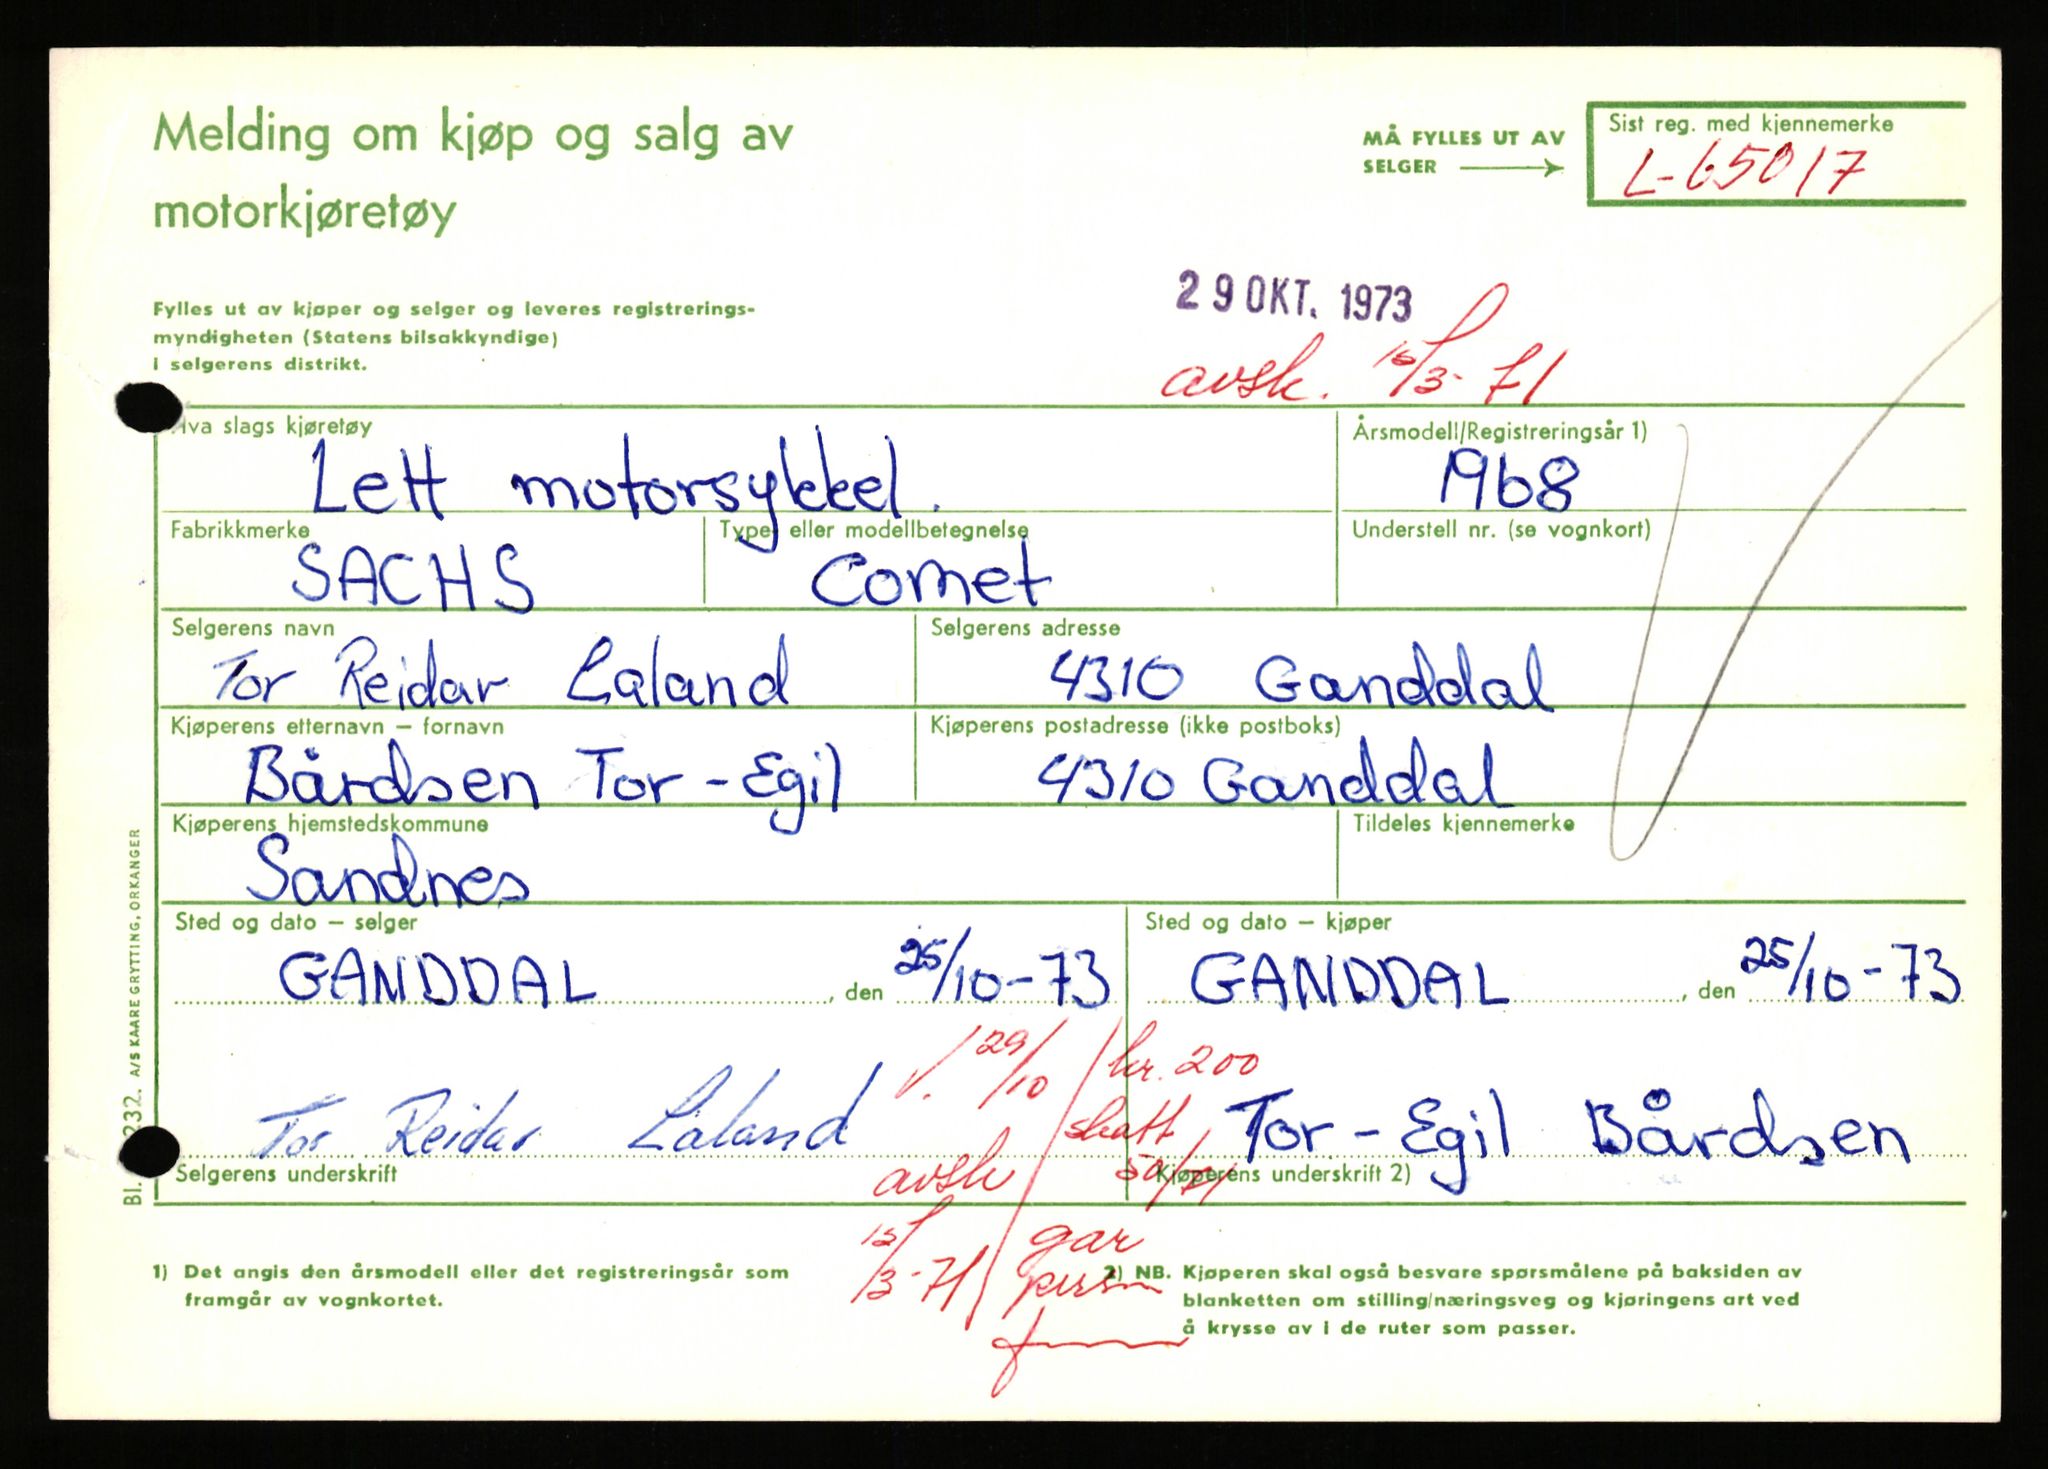 Melding om kjøp og salg av
motorkjøretøy
MÅ FYLLES UT AV
SELGER
Sist reg. med kjennemerke
L-65017
Fylles ut av kjøper og selger og leveres registrerings-
myndigheten (Statens bilsakkyndige)
i selgerens distrikt.
29 OKT. 1973
avsk. 15/3-71
Hva slags kjøretøy
Lett motorsykkel.
Årsmodell/Registreringsår 1)
1968
Fabrikkmerke
SACHS
Type eller modellbetegnelse
Comet
Understell nr. (se vognkort)
Selgerens navn
Tor Reidar Laland
Selgerens adresse
4310 Ganddal
Kjøperens etternavn – fornavn
Bårdsen Tor-Egil
Kjøperens postadresse (ikke postboks)
4310 Ganddal
Kjøperens hjemstedskommune
Sandnes
Tildeles kjennemerke
Sted og dato – selger
GANDDAL, den 25/10-73
Sted og dato – kjøper
GANDDAL, den 25/10-73
29/10
kr. 200
skatt
Tor Reidar Laland
Selgerens underskrift
Tor-Egil Bårdsen
Kjøperens underskrift 2)
avsk
15/3-71
gar
1) Det angis den årsmodell eller det registreringsår som
framgår av vognkortet.
2) NB. Kjøperen skal også besvare spørsmålene på baksiden av
blanketten om stilling/næringsveg og kjøringens art ved
å krysse av i de ruter som passer.
Bl. 232. A/S KAARE GRYTTING, ORKANGER